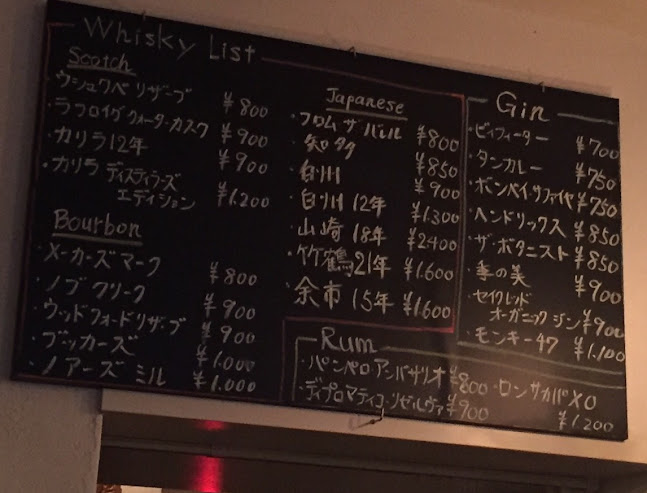 Whisky List
Scotch
・ウシュクベ リザーブ ¥800
・ラフロイグ クォーターカスク ¥900
・カリラ12年 ¥900
・カリラ ディスティラーズ
エディション ¥1.200
Bourbon
・メーカーズ マーク ¥800
・ノブ クリーク ¥900
・ウッドフォードリザーブ ¥900
・ブッカーズ ¥1.000
・ノアーズ ミル ¥1.000
Japanese
・フロム ザ バレル ¥800
・知多 ¥850
・白州 ¥900
・白州 12年 ¥1.300
・山崎 18年 ¥2400
・竹鶴21年 ¥1.600
・余市 15年 ¥1.600
Gin
・ビーフィーター ¥700
・タンカレー ¥750
・ボンベイサファイヤ ¥750
・ヘンドリックス ¥850
・ザ・ボタニスト ¥850
・季の美 ¥900
・セイクレッド
オーガニック ジン ¥900
・モンキー47 ¥1.100
Rum
・パンペロ・アンバサリオ ¥800
・ディプロマティコ・リゼルヴァ ¥900
・ロン サカパXO
¥1.200